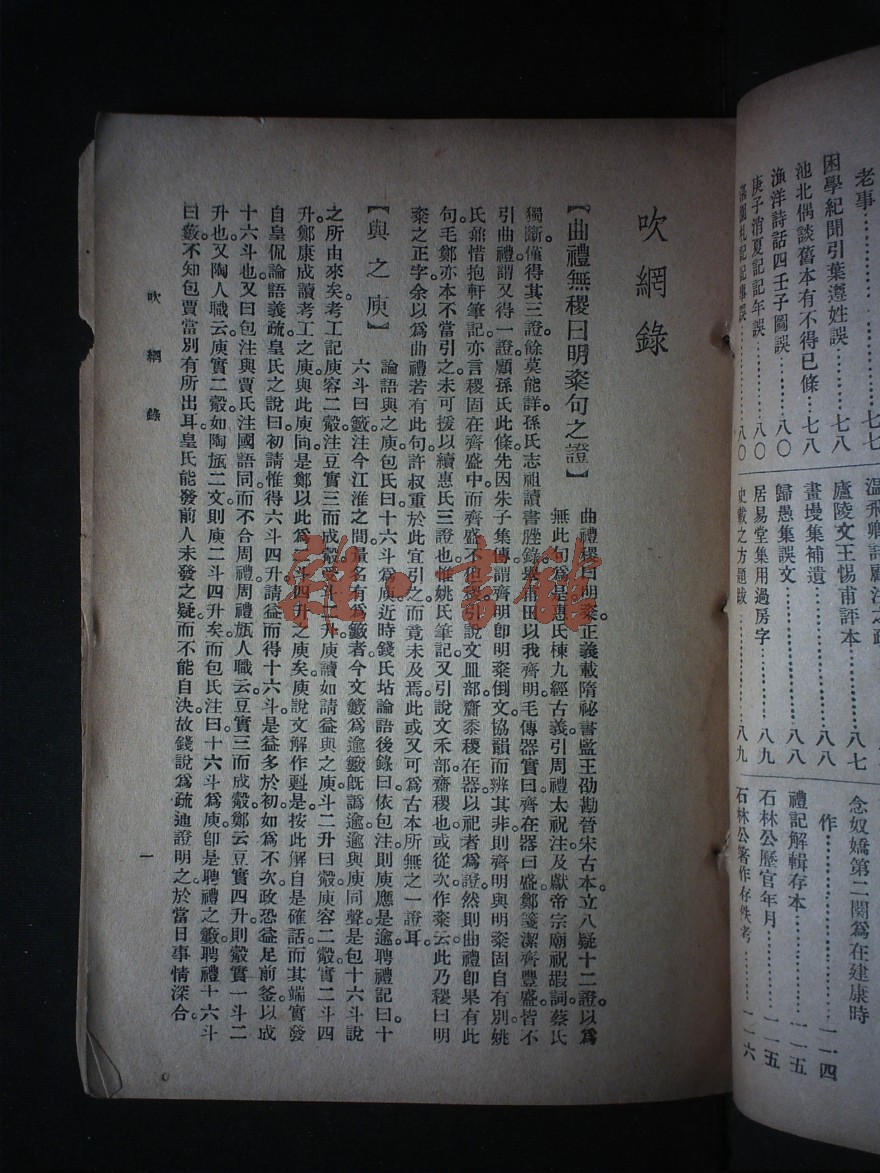 老事⋯⋯⋯⋯⋯⋯七七
困學紀聞引葉遵姓誤⋯⋯七八
池北偶談舊本有不得已條⋯⋯七八
漁洋詩話四壬子圖誤⋯⋯八〇
庚子消夏記記年誤⋯⋯八〇
札記記事誤⋯⋯八〇
盧陵文王惕甫評本⋯⋯八七
畫墁集補遺⋯⋯八八
歸愚集誤文⋯⋯八八
居易堂集用過房字⋯⋯八九
史載之方題跋⋯⋯八九
念奴嬌第二闋爲在建康時
作⋯⋯一一四
禮記解輯存本⋯⋯一一五
石林公歷官年月⋯⋯一一五
石林公著作存佚考⋯⋯一一六
吹網錄
【曲禮無稷曰明粢句之證】
曲禮稷曰明粢正義載隋祕書監王劭勘晉宋古本立八疑十二證以爲
無此句爲是惠氏棟九經古義引周禮太祝注及獻帝宗廟祝嘏詞蔡氏
獨斷僅得其三證。餘莫能詳。孫氏志祖讀書脞錄田以我齊明毛傳器實曰齊在器曰盛鄭箋潔齊豐盛皆不
引曲禮謂又得一證。顧孫氏此條先因朱子集傳謂齊明卽明粢倒文協韻而辨其非則齊明與明粢固自有別姚
氏鼐惜抱軒筆記亦言稷固在齊盛中而齊盛不引說文皿部齍黍稷在器以祀者爲證。然則曲禮卽果有此
句毛鄭亦本不當引之未可援以續惠氏三證也惟姚氏筆記又引說文禾部齋稷也或從次作粢云此乃稷曰明
粢之正字余以爲曲禮若有此句許叔重於此宜引之而竟未及焉此或又可爲古本所無之一證耳。
【與之庾】
論語與之庾包氏曰十六斗爲庾近時錢氏坫論語後錄曰依包注則庾應是逾聘禮記曰十
六斗曰籔注今江淮之間量名有爲籔者今文籔爲逾籔旣譌逾逾與庾同聲是包十六斗說
之所由來矣。考工記庾容二觳注豆實三而成觳受斗二升庾讀如請益與之庾斗二升曰觳庾容二觳實二斗四
升鄭康成讀考工之庾與此庾同是鄭以此爲二斗四升之庾矣庾說文解作斞是按此解自是確話而其端實發
自皇侃論語義疏皇氏之說曰初請惟得六斗四升請益而得十六斗是益多於初如爲不次政恐益足前釜以成
十六斗也又曰包注與賈氏注國語同而不合周禮周禮瓬人職云豆實三而成觳鄭云豆實四升則觳實一斗二
升也又陶人職云庾實二觳如陶瓬二文則庾二斗四升矣而包氏注曰十六斗爲庾卽是聘禮之籔聘禮十六斗
曰籔不知包賈當別有所出耳皇氏能發前人未發之疑而不能自決故錢說爲疏通證明之於當日事情深合。
吹網錄
一